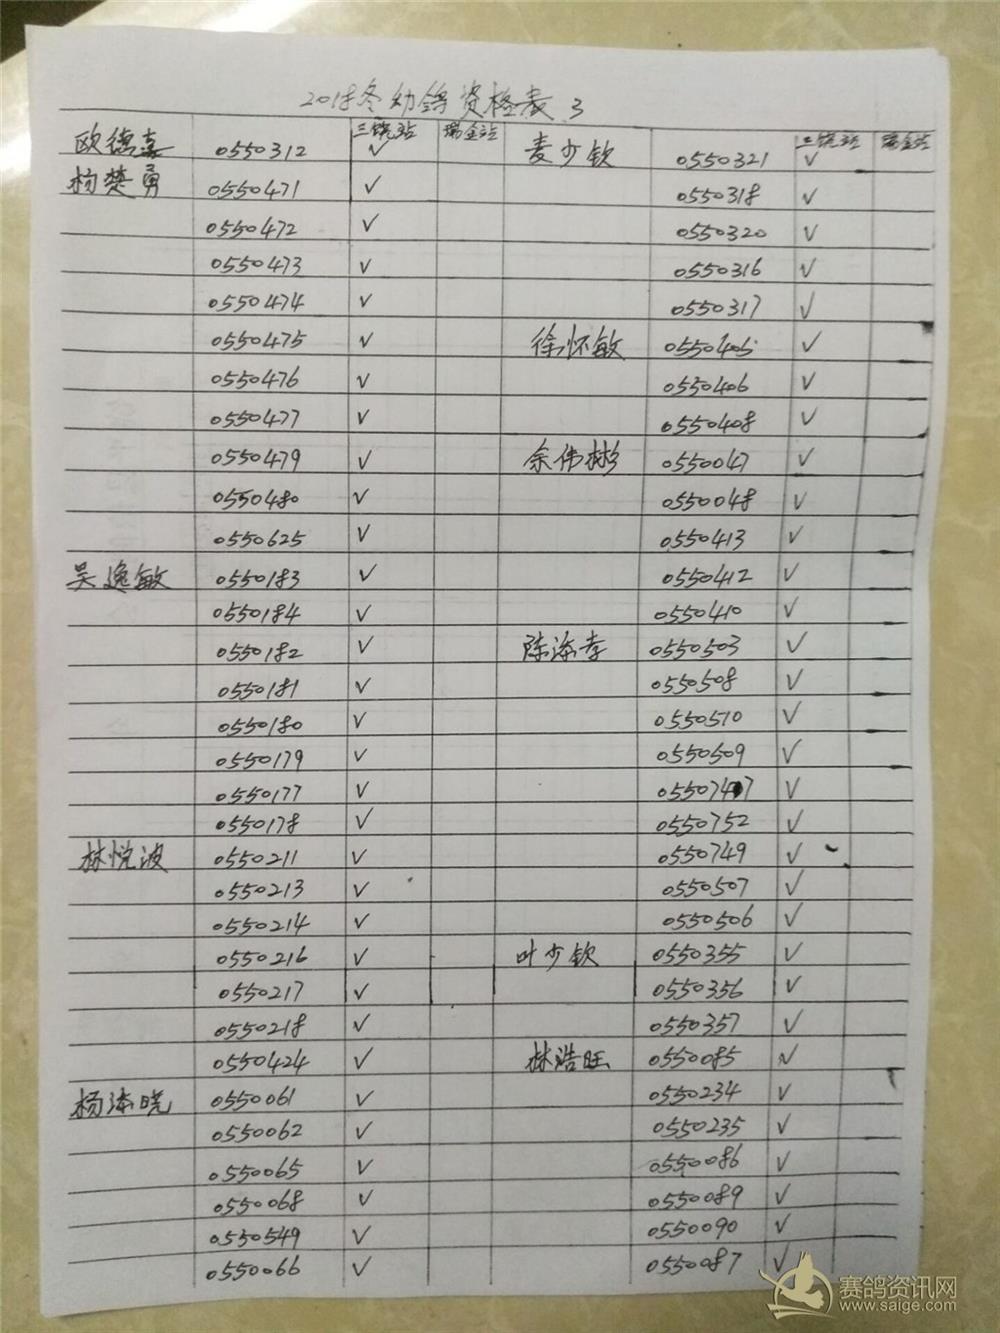 2018冬幼鸽资格表 3
三饶站 瑞金站 三饶站 瑞金站
欧德嘉 0550312 ✓ 麦少钦 0550321 ✓
杨楚勇 0550471 ✓ 0550318 ✓
0550472 ✓ 0550320 ✓
0550473 ✓ 0550316 ✓
0550474 ✓ 0550317 ✓
0550475 ✓ 徐怀敏 0550405 ✓
0550476 ✓ 0550406 ✓
0550477 ✓ 0550408 ✓
0550479 ✓ 余伟彬 0550047 ✓
0550480 ✓ 0550048 ✓
0550625 ✓ 0550413 ✓
吴逸敏 0550183 ✓ 0550412 ✓
0550184 ✓ 0550410 ✓
0550182 ✓ 陈添孝 0550503 ✓
0550181 ✓ 0550508 ✓
0550180 ✓ 0550510 ✓
0550179 ✓ 0550509 ✓
0550177 ✓ ✓
0550178 ✓ 0550752 ✓
林悦波 0550211 ✓ 0550749 ✓
0550213 ✓ 0550507 ✓
0550214 ✓ 0550506 ✓
0550216 ✓ 叶少钦 0550355 ✓
0550217 ✓ 0550356 ✓
0550218 ✓ 0550357 ✓
0550424 ✓ 林浩旺 0550085 ✓
杨沫晓 0550061 ✓ 0550234 ✓
0550062 ✓ 0550235 ✓
0550065 ✓ 0550086 ✓
0550068 ✓ 0550089 ✓
0550549 ✓ 0550090 ✓
0550066 ✓ 0550087 ✓
赛鸽资讯网
www.saige.com